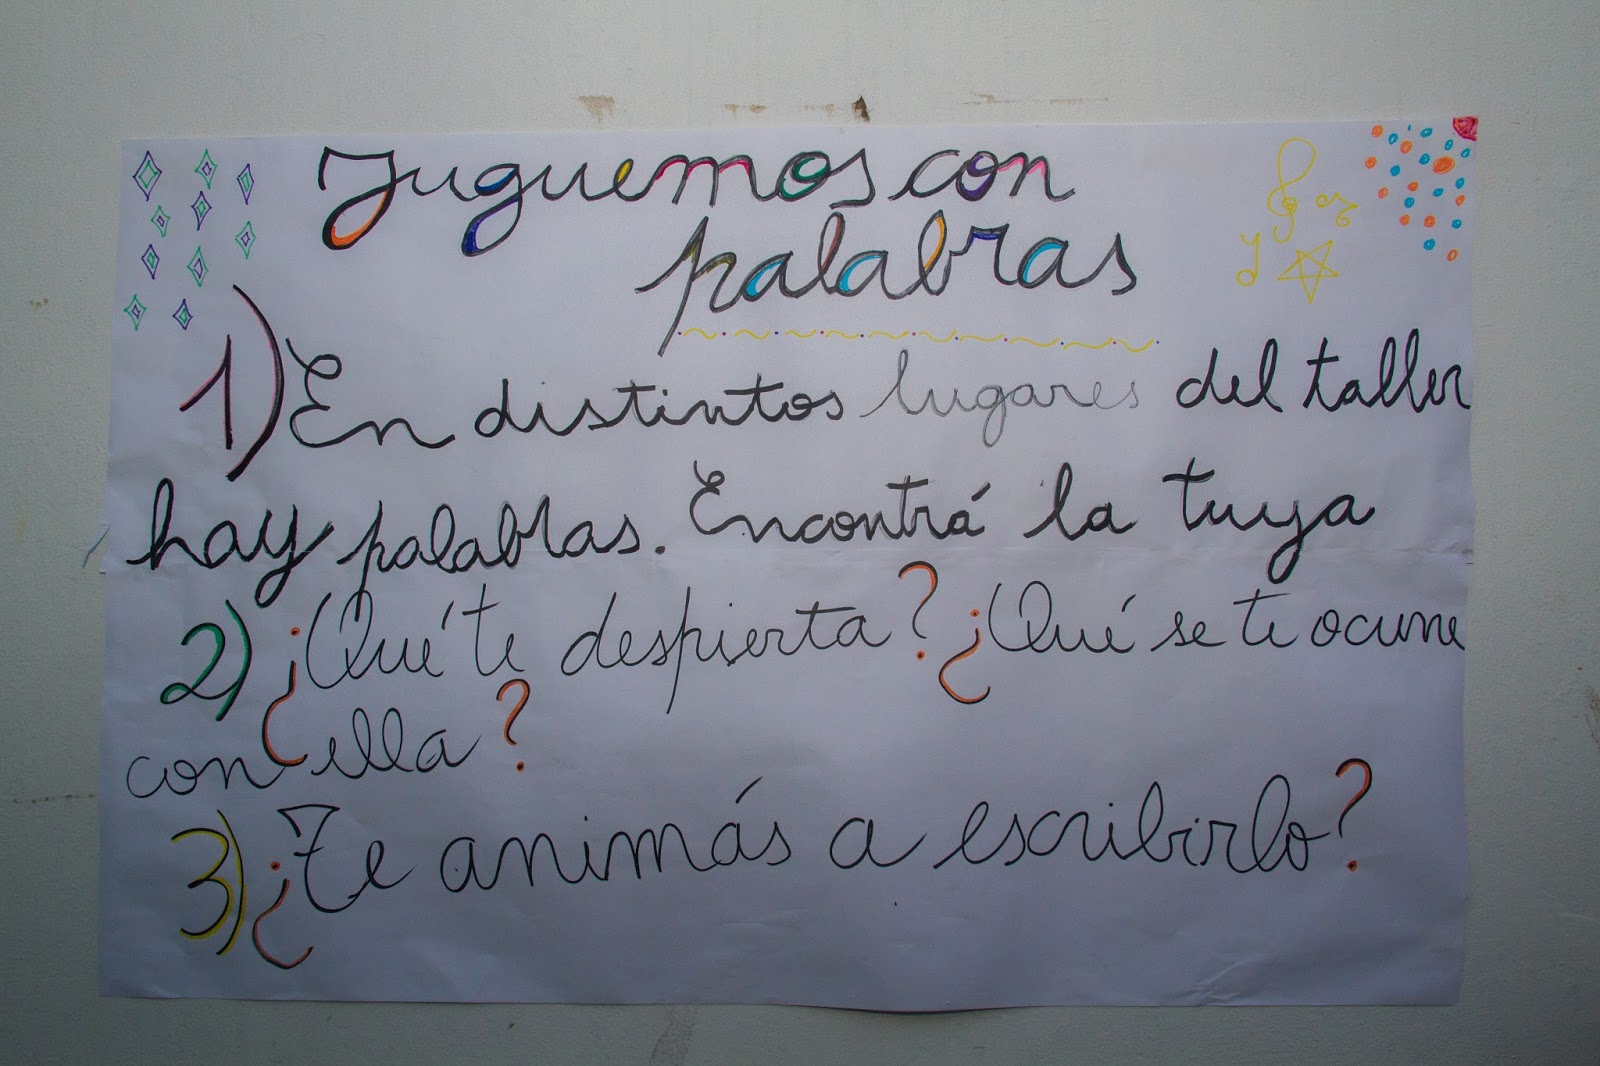 Juguemos con
palabras
1) En distintos lugares del taller
hay palabras. Encontrá la tuya
2) ¿Qué te despierta? ¿Qué se te ocurre
con ella?
3) ¿Te animás a escribirlo?